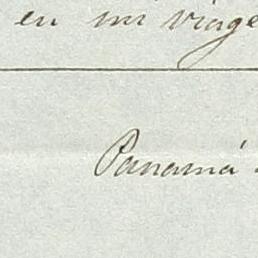 en mi viage
Panamá